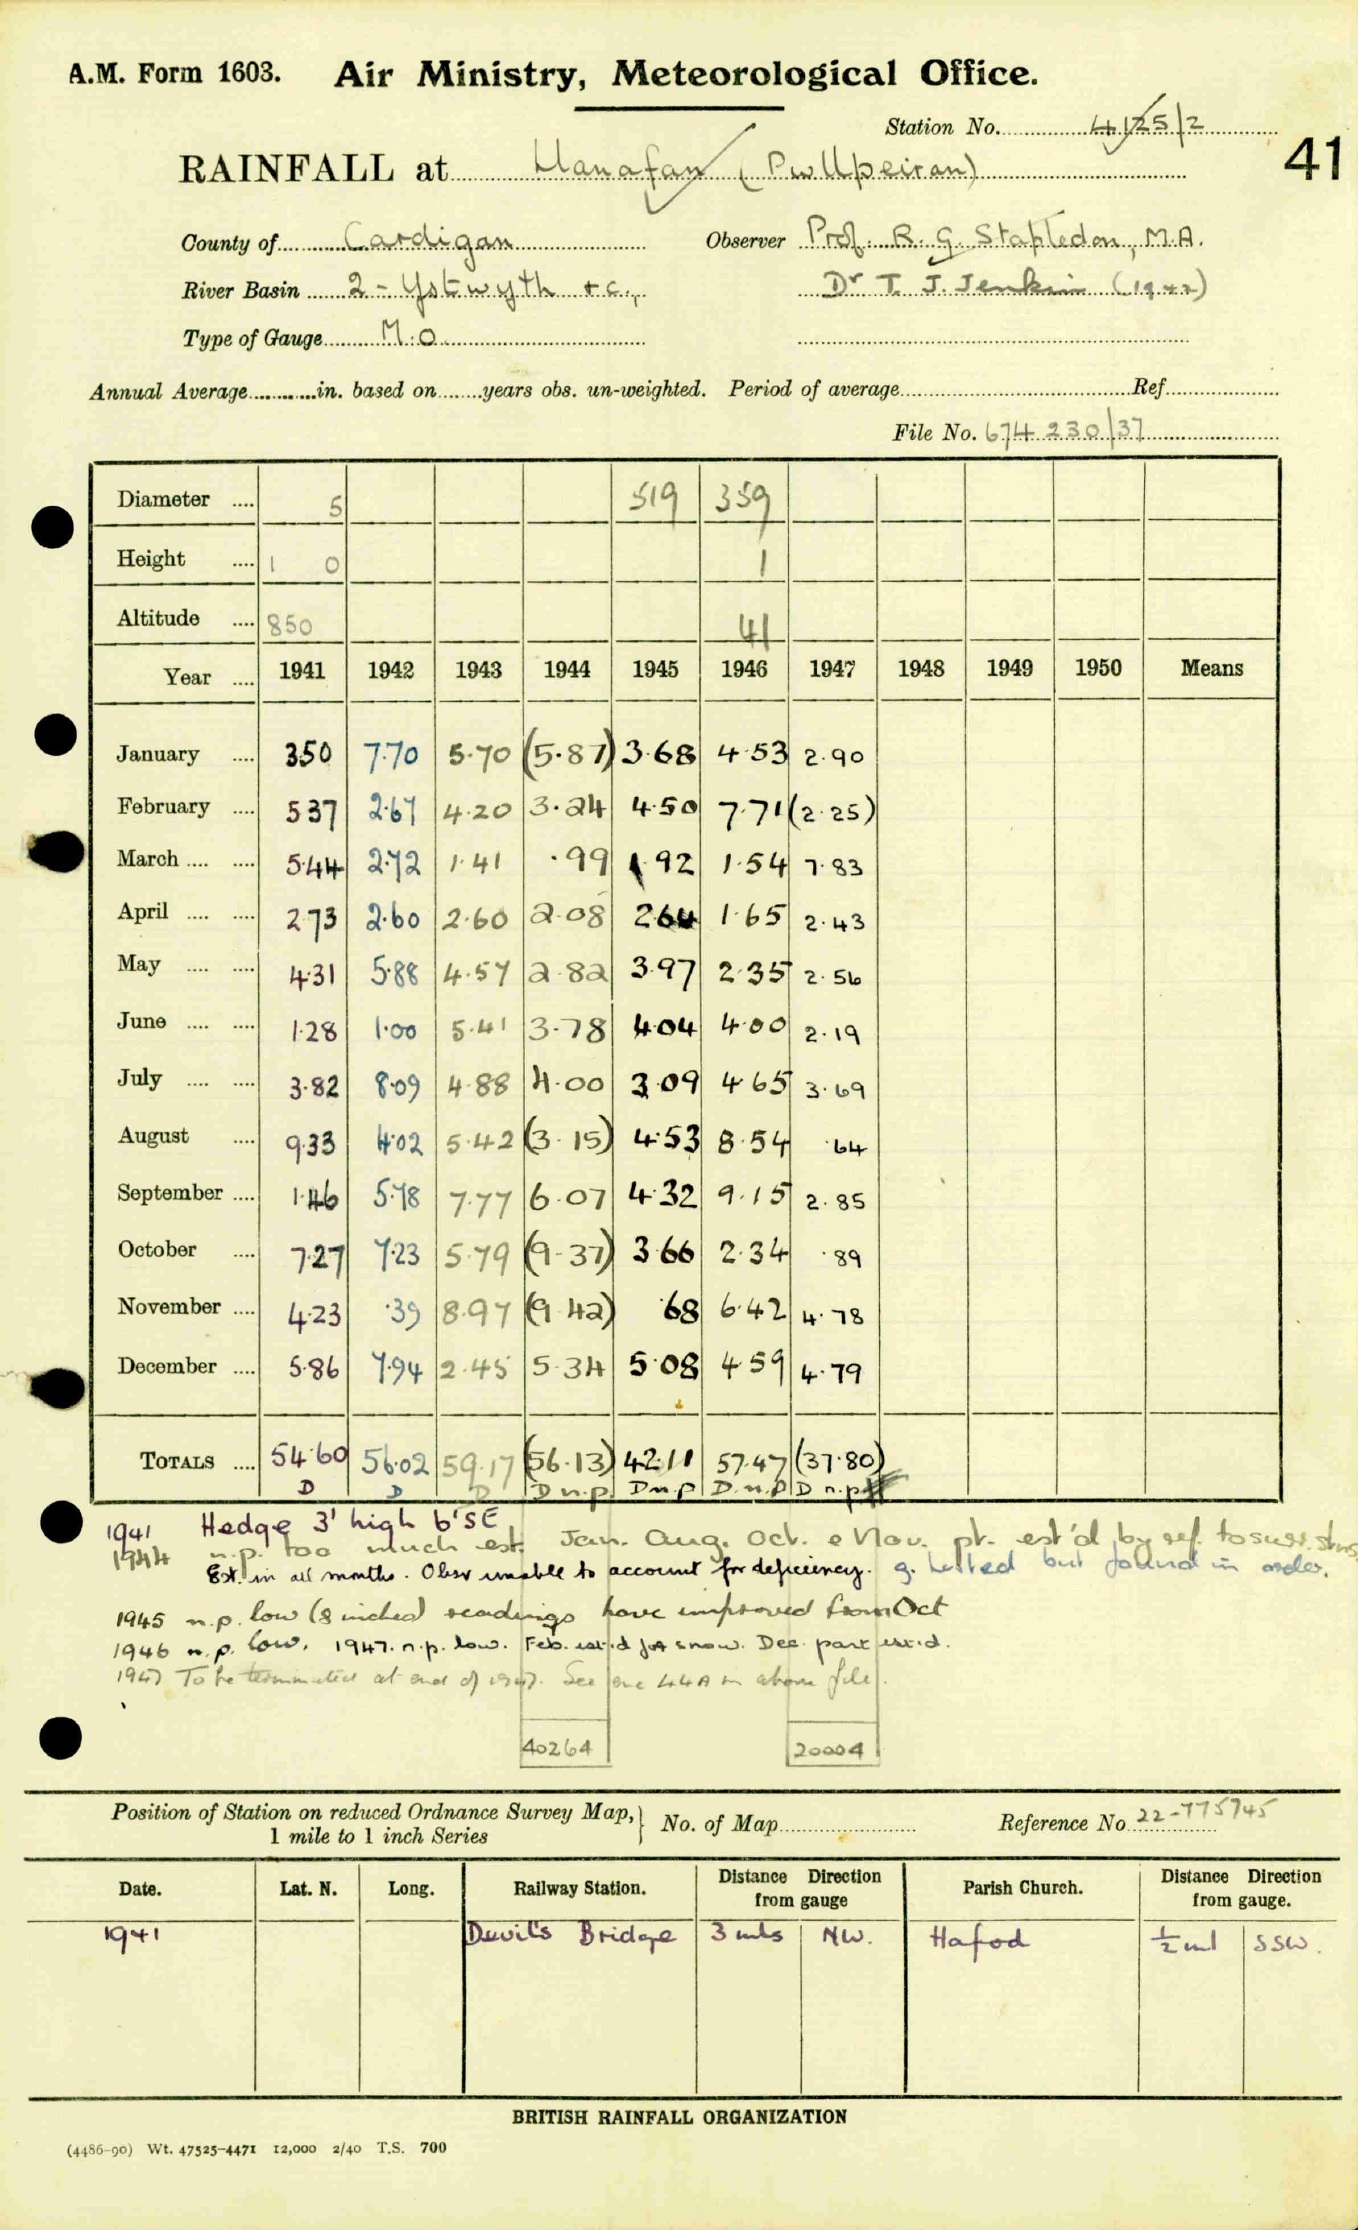 A.M. Form 1603. Air Ministry, Meteorological Office.
Station No. 4125/2
41
RAINFALL at Llanafan (Pwllpeiran)
County of Cardigan Observer Prof. R. G. Stapledon, M.A.
River Basin 2 - Ystwyth &c., Dr T. J. Jenkin (1942)
Type of Gauge M.O.
Annual Average in. based on years obs. un-weighted. Period of average Ref
File No. 674 230/37
Diameter 5 519 359
Height 1 0 1
Altitude 850 41
Year 1941 1942 1943 1944 1945 1946 1947 1948 1949 1950 Means
January 3.50 7.70 5.70 (5.87) 3.68 4.53 2.90
February 5.37 2.67 4.20 3.24 4.50 7.71 (2.25)
March 5.44 2.72 1.41 .99 1.92 1.54 7.83
April 2.73 2.60 2.60 2.08 2.64 1.65 2.43
May 4.31 5.88 4.57 2.82 3.97 2.35 2.56
June 1.28 1.00 5.41 3.78 4.04 4.00 2.19
July 3.82 8.09 4.88 4.00 3.09 4.65 3.69
August 9.33 4.02 5.42 (3.15) 4.53 8.54 .64
September 1.46 5.78 7.77 6.07 4.32 9.15 2.85
October 7.27 7.23 5.79 (9.37) 3.66 2.34 .89
November 4.23 .39 8.97 (9.42) .68 6.42 4.78
December 5.86 7.94 2.45 5.34 5.08 4.59 4.79
TOTALS 54.60 56.02 59.17 (56.13) 42.11 57.47 (37.80)
D D D D n.p. D n.p D.n.p D n.p
1941 Hedge 3' high 6' SE
1944 n.p. too much est. Jan. Aug. Oct. & Nov. pt. est'd by ref. to surr. stns.
Est. in all months. Obsr unable to account for deficiency. g. tested but found in order.
1945 n.p. low (8 inches) readings have improved from Oct
1946 n.p. low. 1947. n.p. low. Feb. est'd for snow. Dec. part est'd.
1947 To be terminated at end of 1947. See enc 44A in above file.
40264 20004
Position of Station on reduced Ordnance Survey Map, 1 mile to 1 inch Series } No. of Map Reference No. 22-775745
Date. Lat. N. Long. Railway Station. Distance Direction from gauge Parish Church. Distance Direction from gauge.
1941 Devil's Bridge 3 mls NW. Hafod ½ ml SSW.
BRITISH RAINFALL ORGANIZATION
(4486-90) Wt. 47525-4471 12,000 2/40 T.S. 700